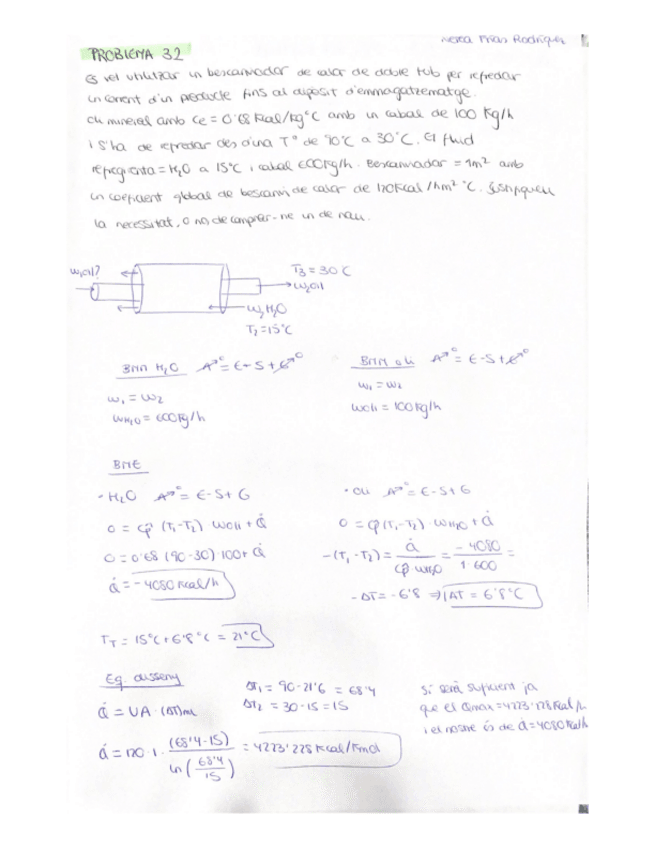 Nerea Frias Rodríguez
PROBLEMA 3.2
Es vol utilitzar un bescanviador de calor de doble tub per refredar
un corrent d'un producte fins al dipòsit d'emmagatzematge.
Oli mineral amb Ce = 0'68 Kcal/kg°C amb un cabal de 100 Kg/h
i s'ha de refredar des d'una Tª de 90°C a 30°C. El fluid
refrigerant = H2O a 15°C i cabal 600Kg/h. Bescanviador = 1m² amb
un coeficient global de bescanvi de calor de 120Kcal/hm²°C. Justifiqueu
la necessitat, o no, de comprar-ne un de nou.
W1oli?
T3 = 30 C
W2Oli
W2H2O
T2 = 15°C
BMM H2O A→0 = E - S + G→0
BMM oli A→0 = E - S + G→0
w1 = w2
w1 = w2
WH2O = 600Kg/h
Woli = 100Kg/h
BME
· H2O A→0 = E - S + G
· Oli A→0 = E - S + G
0 = cp (T1-T2) · woli + Q̇
0 = cp (T1-T2) · wH2O + Q̇
0 = 0'68 (90-30) · 100 + Q̇
-(T1-T2) = Q̇ / cp · wH2O = -4080 / 1 · 600 =
Q̇ = -4080 Kcal/h
-ΔT = -6'8 ⇒ ΔT = 6'8°C
TT = 15°C + 6'8°C = 21°C
Eq. disseny
Q̇ = UA · (ΔT)ml
ΔT1 = 90-21'6 = 68'4
ΔT2 = 30-15 = 15
Q̇ = 120 · 1 · (68'4-15) / ln (68'4 / 15) = 4223'228 Kcal/
Sí serà suficient ja
que el Qmax = 4223'228 Kcal/h
i el nostre és de Q̇ = 4080 Kcal/h